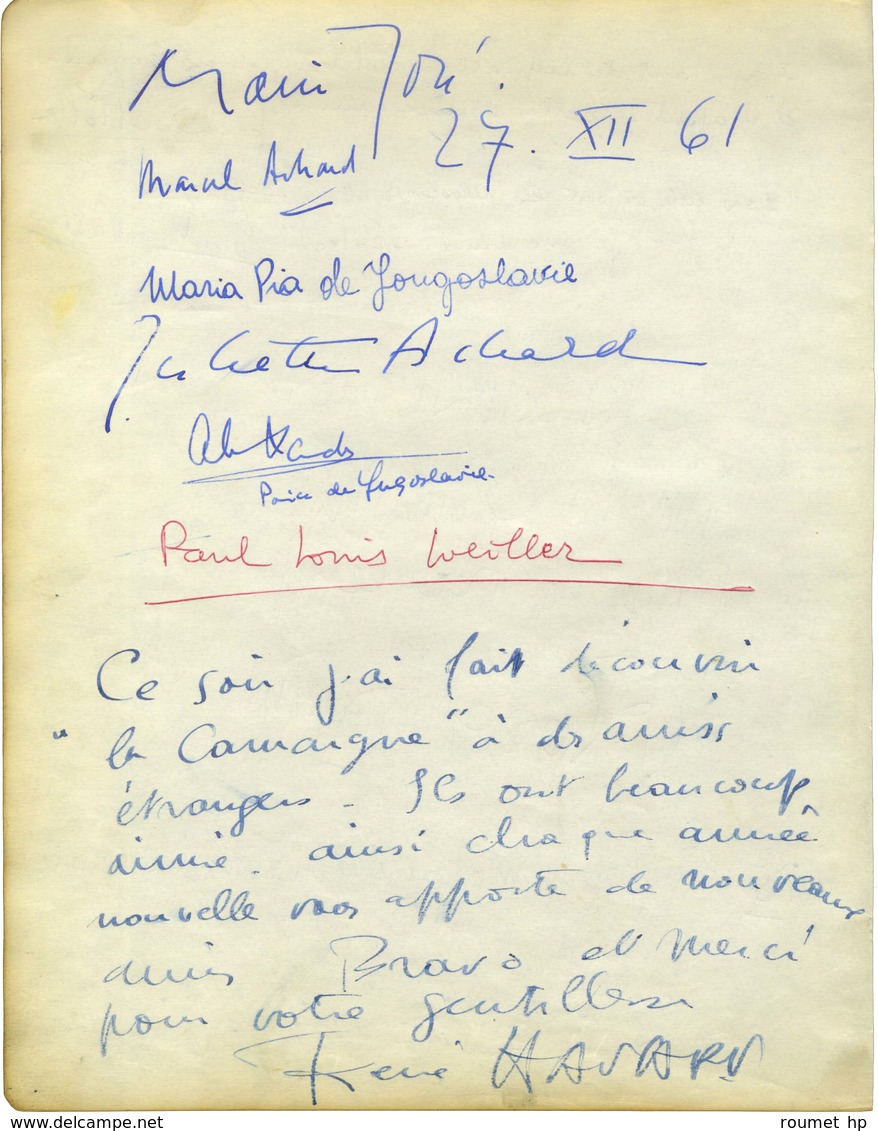 Marie José.
27. XII 61
Marcel Achard
Maria Pia de Yougoslavie
Juliette Achard
Alexandre
Prince de Yugoslavie.
Paul Louis Weiller
Ce soir j'ai fait découvrir
"la Camargue" à des amis
étrangers - Ils ont beaucoup
aimé. ainsi chaque année
nouvelle vous apporte de nouveaux
amis Bravo et merci
pour votre gentillesse
René HAVARD
Delcampe.net
roumet hp